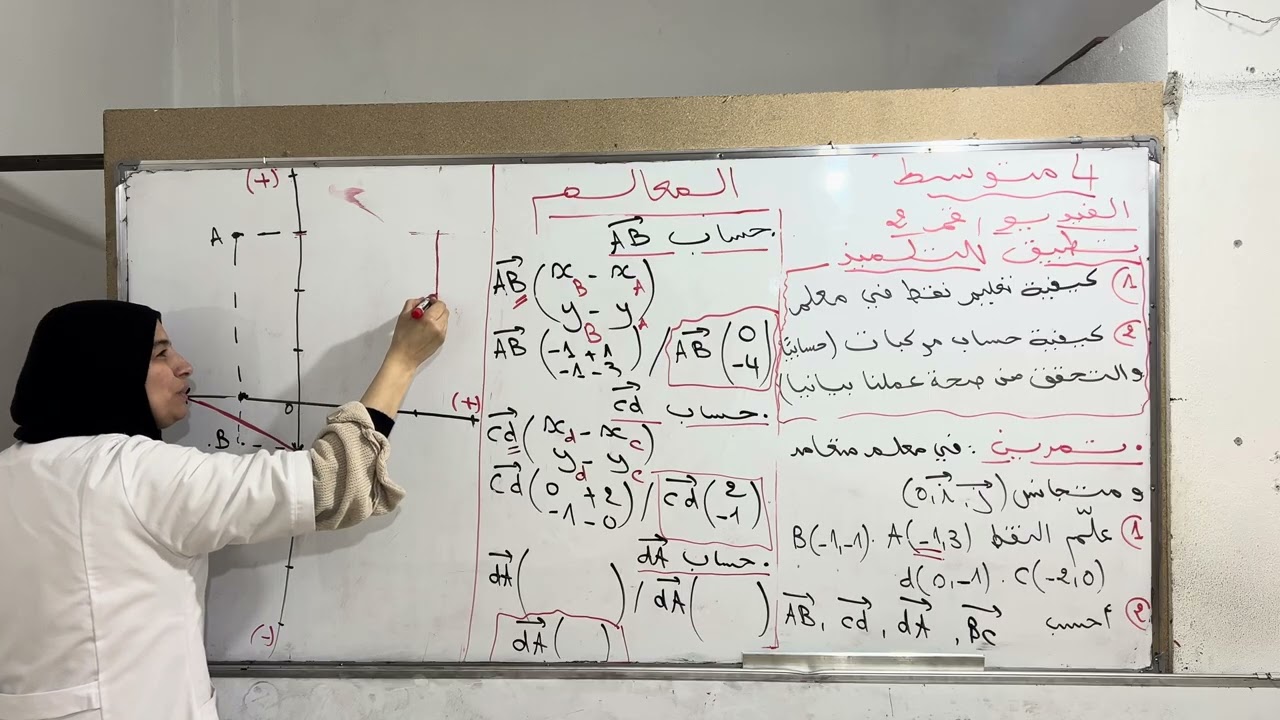 4 متوسط
الفيديو رقم 2
تطبيق للتلميذ
① كيفية تعليم نقط في معلم
② كيفية حساب مركبات (حسابيًا)
والتحقق من صحة عملنا بيانيا)
. تمرين : في معلم متعامد
و متجانس (0, i, j)
① علّم النقط A(-1,3) . B(-1,-1)
C(-2,0) . d(0,-1)
② أحسب AB, cd, dA, BC
المعالم
. حساب AB
AB ( x_B - x_A
y_B - y_A )
AB ( -1 + 1
-1 - 3 ) / AB ( 0
-4 )
. حساب cd
cd ( x_d - x_c
y_d - y_c )
cd ( 0 + 2
-1 - 0 ) / cd ( 2
-1 )
. حساب dA
dA ( ) / dA ( )
dA ( )
(+)
A
0
(+)
.B
(-)